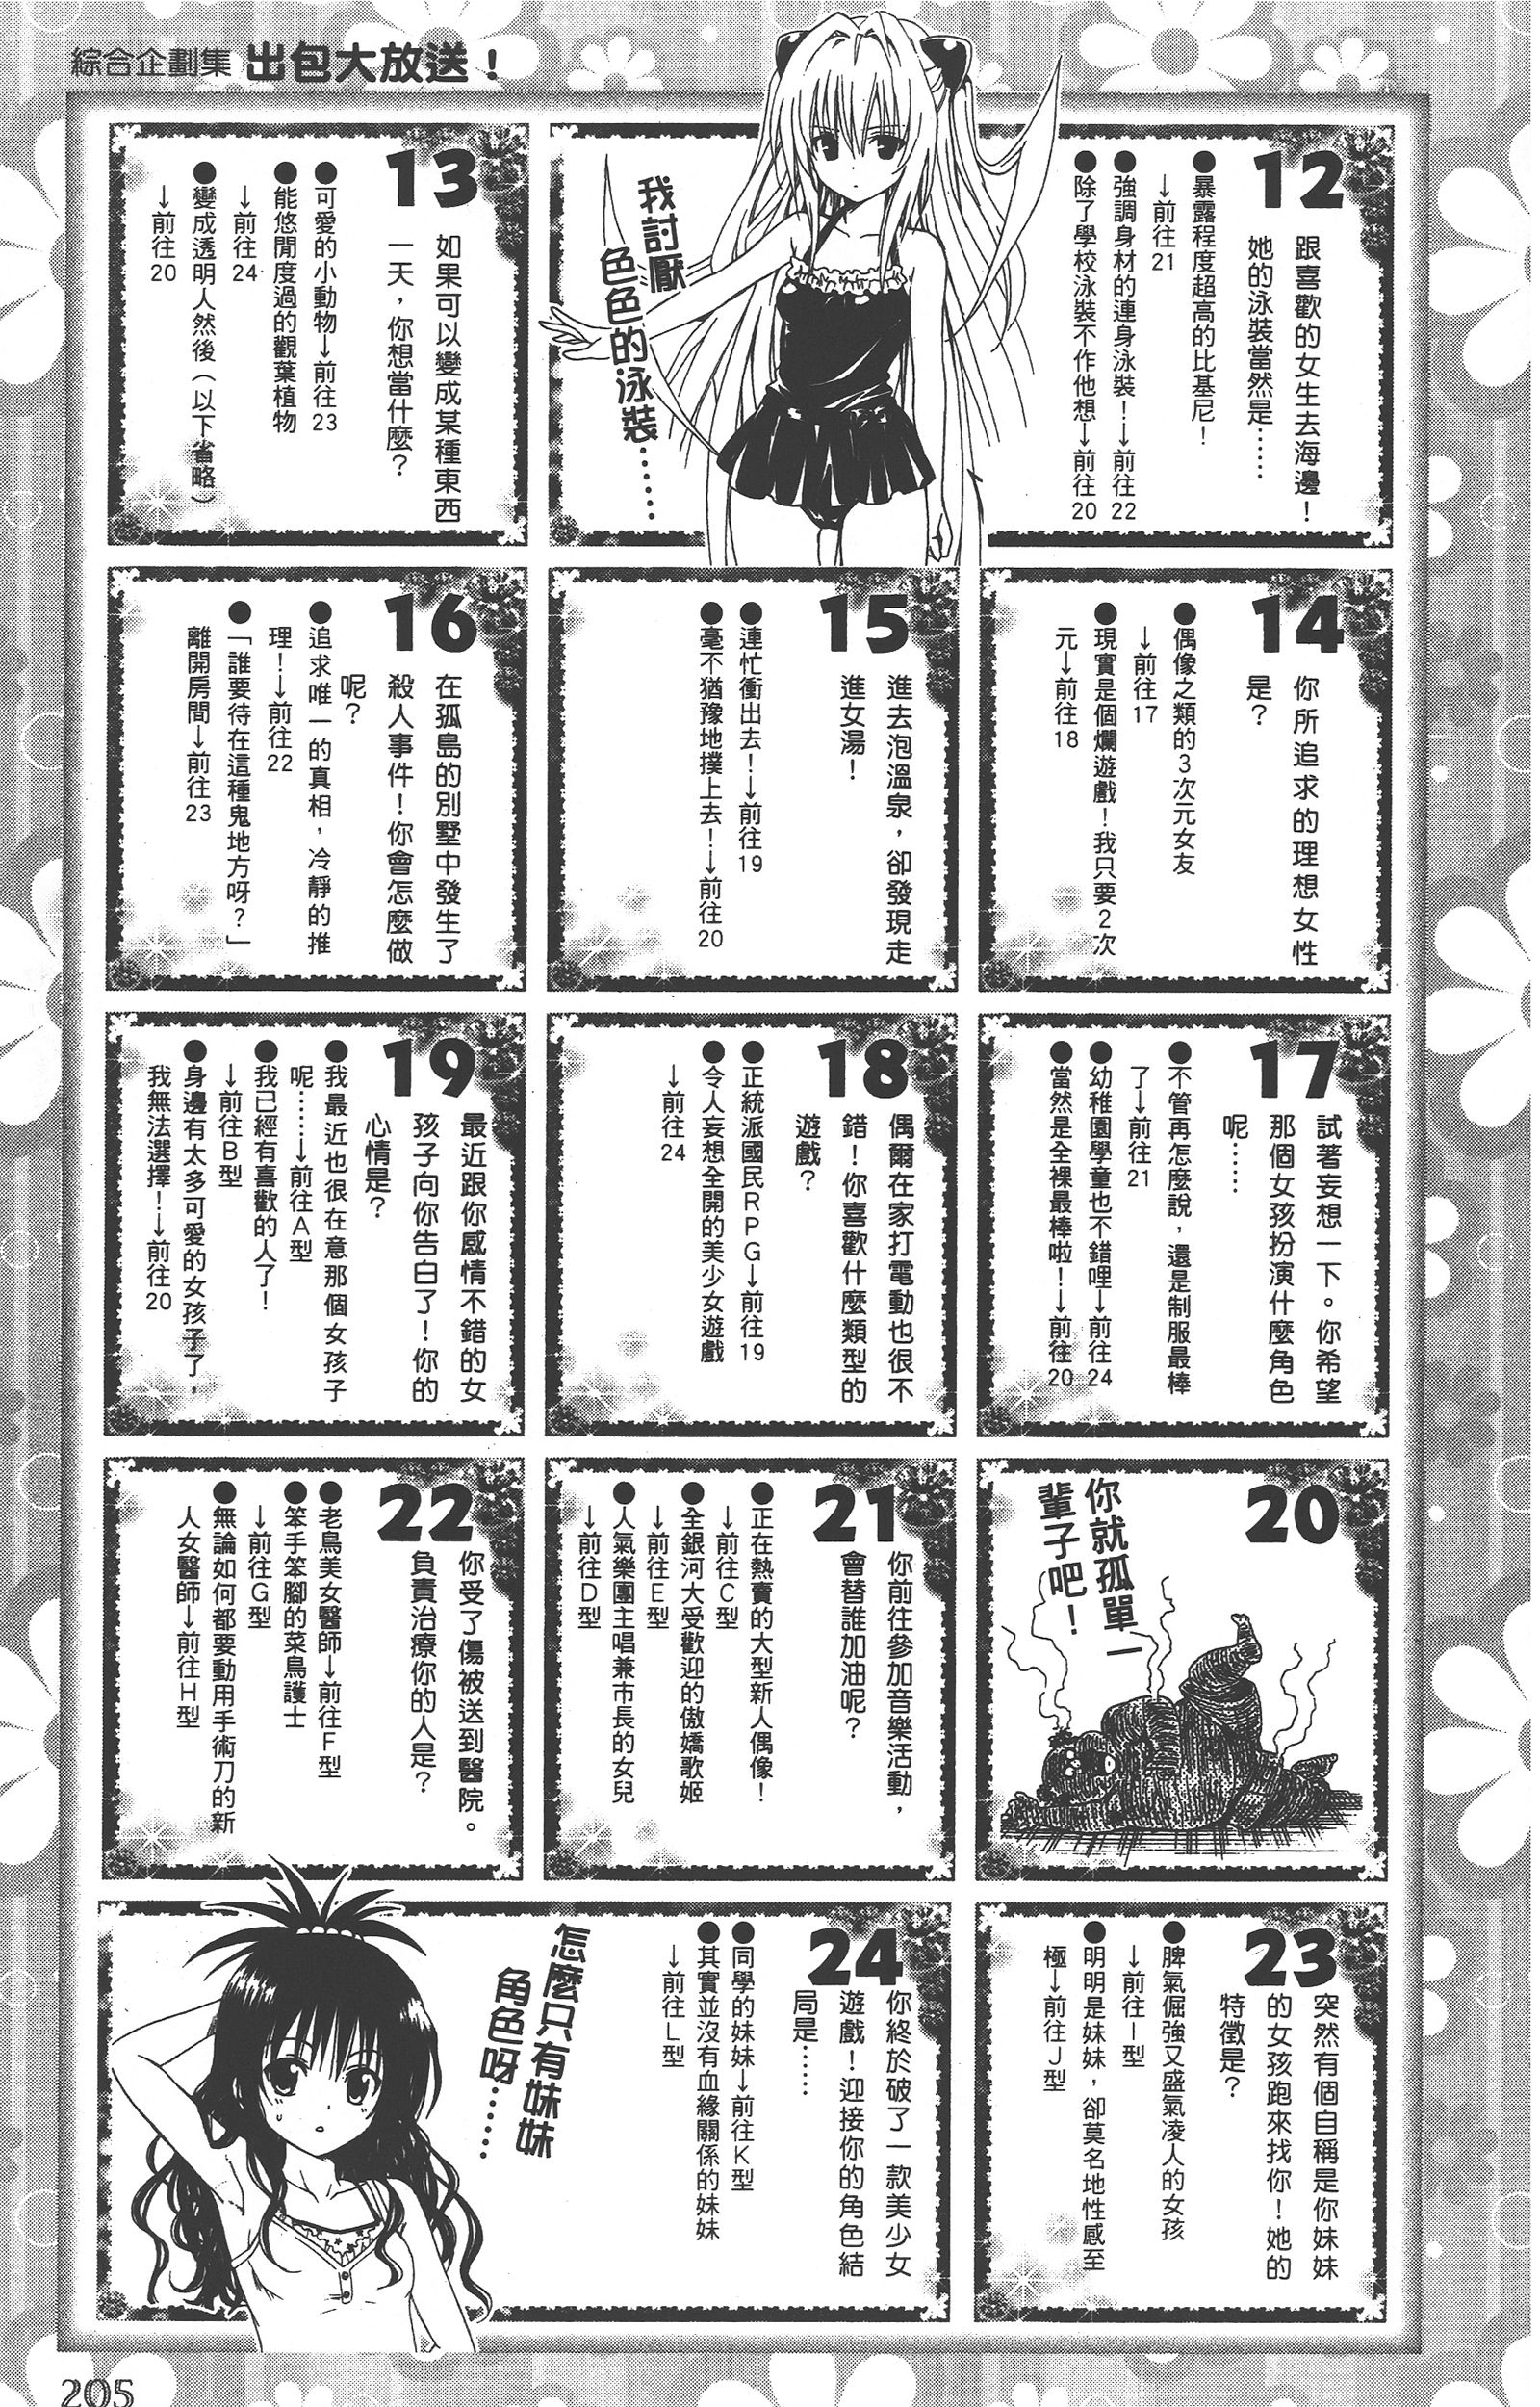 綜合企劃集 出包大放送！
12
跟喜歡的女生去海邊！
她的泳裝當然是……
●暴露程度超高的比基尼！
→前往21
●強調身材的連身泳裝！→前往22
●除了學校泳裝不作他想→前往20
我討厭
色色的泳裝……
13
如果可以變成某種東西
一天，你想當什麼？
●可愛的小動物→前往23
●能悠閒度過的觀葉植物
→前往24
●變成透明人然後（以下省略）
→前往20
14
你所追求的理想女性
是？
●偶像之類的3次元女友
→前往17
●現實是個爛遊戲！我只要2次
元→前往18
15
進去泡溫泉，卻發現走
進女湯！
●連忙衝出去！→前往19
●毫不猶豫地撲上去！→前往20
16
在孤島的別墅中發生了
殺人事件！你會怎麼做
呢？
●追求唯一的真相，冷靜的推
理！→前往22
●「誰要待在這種鬼地方呀？」
離開房間→前往23
17
試著妄想一下。你希望
那個女孩扮演什麼角色
呢……
●不管再怎麼說，還是制服最棒
了→前往21
●幼稚園學童也不錯哩→前往24
●當然是全裸最棒啦！→前往20
18
偶爾在家打電動也很不
錯！你喜歡什麼類型的
遊戲？
●正統派國民RPG→前往19
●令人妄想全開的美少女遊戲
→前往24
19
最近跟你感情不錯的女
孩子向你告白了！你的
心情是？
●我最近也很在意那個女孩子
呢……→前往A型
●我已經有喜歡的人了！
→前往B型
●身邊有太多可愛的女孩子了，
我無法選擇！→前往20
20
你就孤單一
輩子吧！
21
你前往參加音樂活動，
會替誰加油呢？
●正在熱賣的大型新人偶像！
→前往C型
●全銀河大受歡迎的傲嬌歌姬
→前往E型
●人氣樂團主唱兼市長的女兒
→前往D型
22
你受了傷被送到醫院。
負責治療你的人是？
●老鳥美女醫師→前往F型
●笨手笨腳的菜鳥護士
→前往G型
●無論如何都要動用手術刀的新
人女醫師→前往H型
23
突然有個自稱是你妹妹
的女孩跑來找你！她的
特徵是？
●脾氣倔強又盛氣凌人的女孩
→前往I型
●明明是妹妹，卻莫名地性感至
極→前往J型
24
你終於破了一款美少女
遊戲！迎接你的角色結
局是……
●同學的妹妹→前往K型
●其實並沒有血緣關係的妹妹
→前往L型
怎麼只有妹妹
角色呀……
205